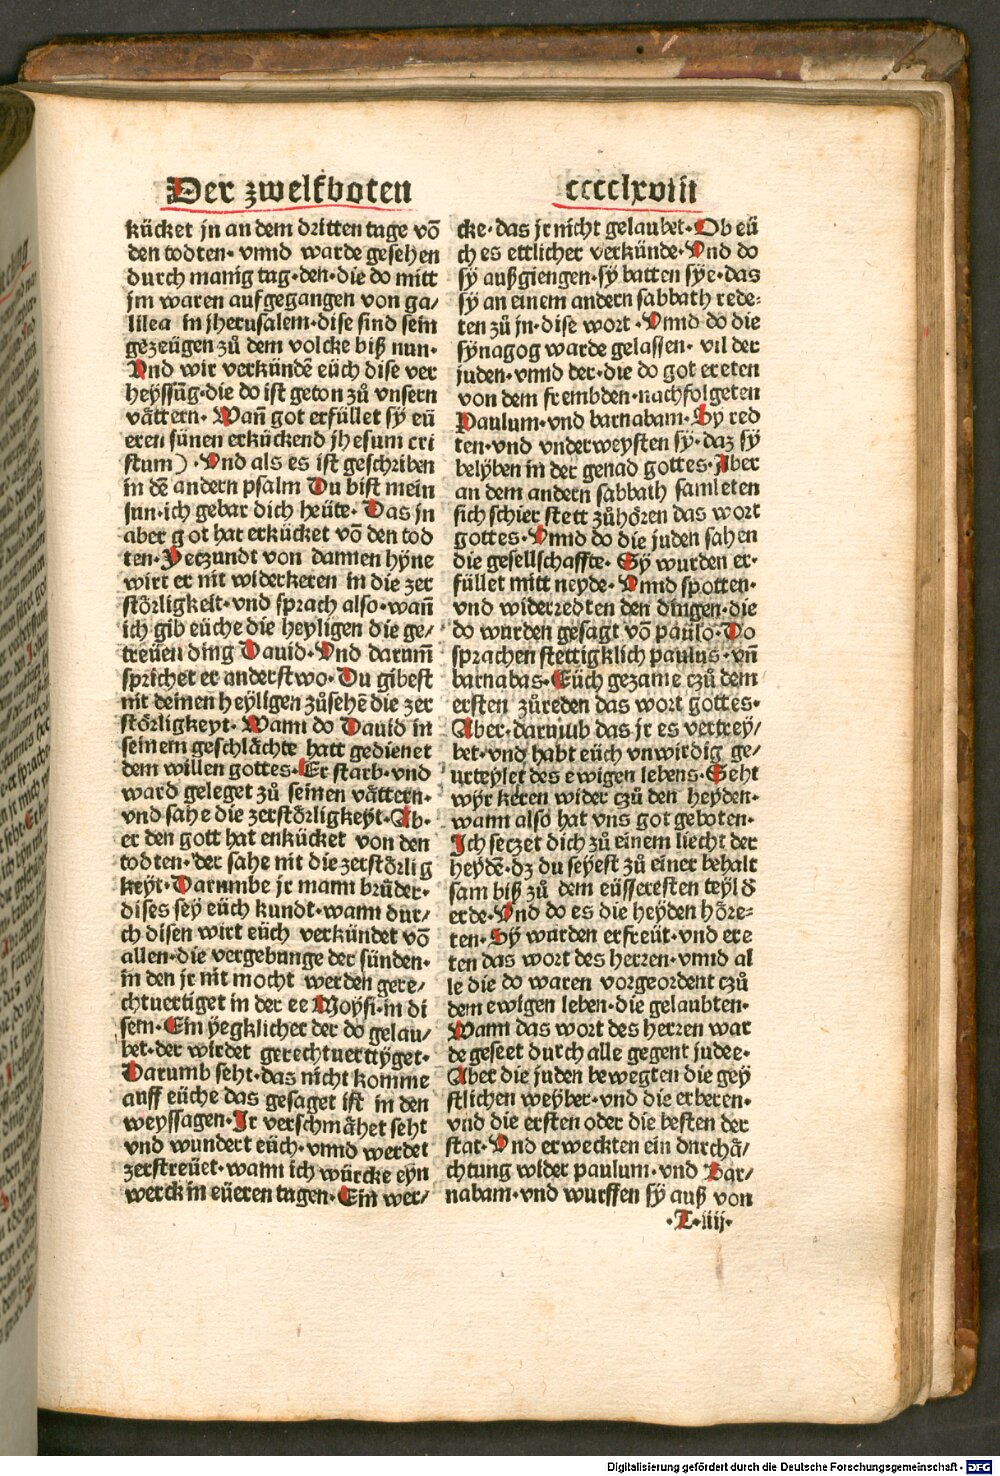 Der zwelfboten
cccclxviii
kücket jn an dem dritten tage võ
den todten· vnnd warde gesehen
durch manig tag·den·die do mitt
jm waren aufgegangen von ga/
lilea in jherusalem·dise sind sein
gezeügen zů dem volcke biß nun·
Vnd wir verkündẽ eüch dise ver
heyssũg·die do ist geton zů vnsern
våttern· Wañ got erfüllet sÿ eü
eren sünen erkückend jhesum cri
stum)·Vnd als es ist geschriben
in dẽ andern psalm Du bist mein
sun·ich gebar dich heüte·Das jn
aber got hat erkücket võ den tod
ten·Yetzundt von dannen hÿne
wirt er nit widerkeren in die zer
störligkeit·vnd sprach also·wañ
ich gib eüche die heyligen die ge/
treüen ding Dauid·Vnd darum̃
sprichet er anderstwo·Du gibest
nit deinen heyligen zůsehẽ die zer
störligkeyt·Wann do Dauid in
seinem geschlåchte hatt gedienet
dem willen gottes·Er starb·vnd
ward geleget zů seinen våttern·
vnd sahe die zerstörligkeÿt·Ab·
er den gott hat enkücket von den
todten·der sahe nit die zerstörlig
keÿt·Darumbe jr mann brüder·
dises seÿ eüch kundt·wann dur/
ch disen wirt eüch verkündet võ
allen·die vergebunge der sünden·
in den jr nit mocht werden gere/
chtuertiget in der ee Moÿsi·in di
sem·Ein ÿegklicher der do gelau/
bet·der wirdet gerechtuerttÿget·
Darumb seht·das nicht komme
auff eüche das gesaget ist in den
weyssagen·Ir verschmåhet seht
vnd wundert eüch·vnnd werdet
zerstreüet·wann ich würcke eyn
werck in eüeren tagen·Ein wer/
cke·das jr nicht gelaubet·Ob eü
ch es ettlicher verkünde·Vnd do
sÿ außgiengen·sÿ batten sÿe·das
sÿ an einem andern sabbath rede=
ten zů jn·dise wort·Vnnd do die
sÿnagog warde gelassen· vil der
juden·vnnd der·die do got ereten
von dem frembden·nachfolgeten
Paulum·vnd barnabam·Sy red
ten·vnd vnderweysten sÿ·daz sÿ
belÿben in der genad gottes·Aber
an dem andern sabbath samleten
sich schier stett zůhören das wort
gottes·Vnnd do die juden sahen
die gesellschaffte·Sÿ wurden er·
füllet mitt neyde·Vnnd spotten·
vnd widerredten den dingen·die
do wurden gesagt võ paulo·Do
sprachen stettigklich paulus·vñ
barnabas·Eüch gezame czů dem
ersten zůreden das wort gottes·
Aber·darumb das jr es vertrey/
bet·vnd habt eüch vnwirdig ge/
urteylet des ewigen lebens·Seht
wÿr keren wider czů den heyden·
wann also hat vns got geboten·
Ich seczet dich zů einem liecht der
heydẽ·dz du seyest zů einer behalt
sam biß zů dem eüsseresten teyl d̓
erde·Vnd do es die heyden höre=
ten·Sÿ wurden erfreüt·vnd ere
ten das wort des herren·vnnd al
le die do waren vorgeordent czů
dem ewigen leben·die gelaubten·
Wann das wort des herren war
de geseet durch alle gegent judee·
Aber die juden bewegten die geÿ
stlichen weÿber·vnd die erberen·
vnd die ersten oder die besten der
stat·Vnd erweckten ein durchå/
chtung wider paulum·vnd Bar/
nabam·vnd wurffen sÿ auß von
·T·iiij·
Digitalisierung gefördert durch die Deutsche Forschungsgemeinschaft - DFG